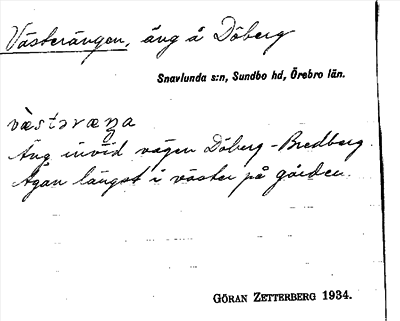 Västerängen, äng å Döberg
Snavlunda s:n, Sundbo hd, Örebro län.
västəræŋa
Äng invid vägen Döberg - Bredberg.
Ägan längst i väster på gården.
GÖRAN ZETTERBERG 1934.